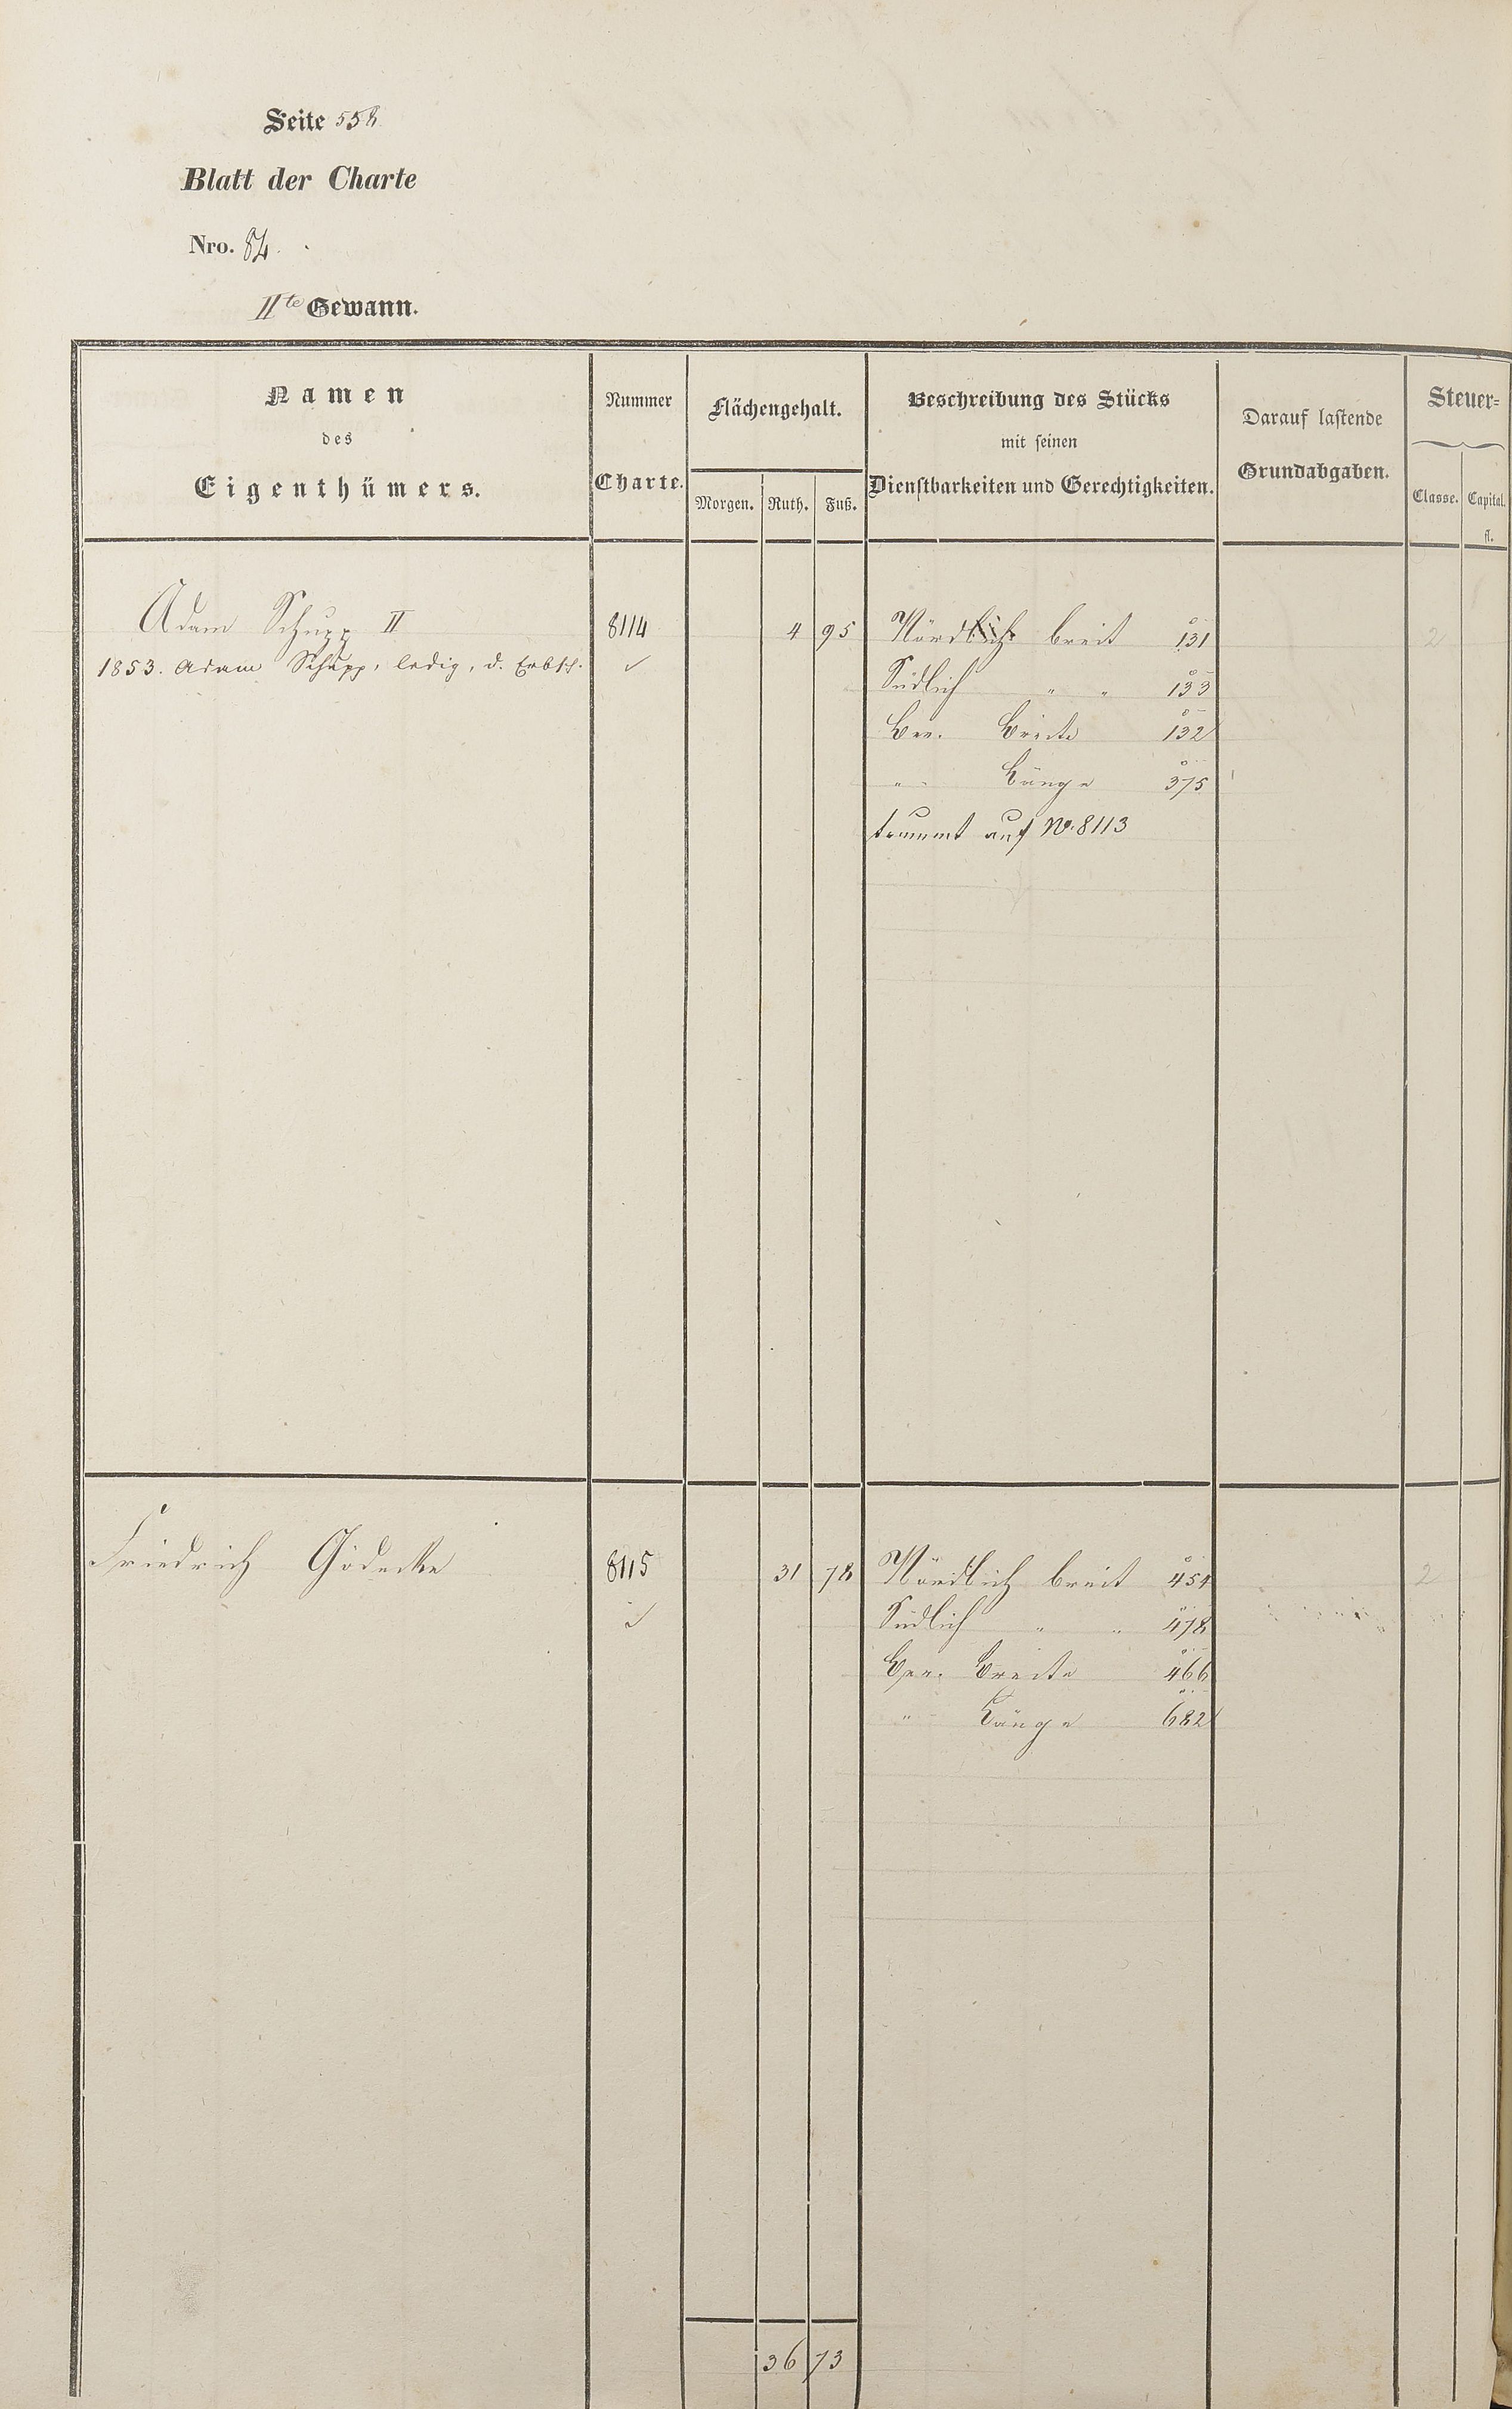 Seite 558
Blatt der Charte
Nro. 84.
IIte Gewann.
Namen
des
Eigenthümers.
Nummer
Charte.
Flächengehalt.
Morgen. Ruth. Fuß.
Beschreibung des Stücks
mit seinen
Dienstbarkeiten und Gerechtigkeiten.
Darauf lastende
Grundabgaben.
Steuer-
Classe. Capital.
fl.
Adam Schupp II 8114 4 95 Nördlich breit 131 2
1853. Adam Schupp, ledig, d. Erbsch. ✓
Südlich " " 133
Ber. Breite 132
" Länge 375
trummt auf No. 8113
Friedrich Gödecke 8115 31 78 Nördlich breit 454 2
✓ Südlich " " 478
Ber. Breite 466
" Länge 682
36 73